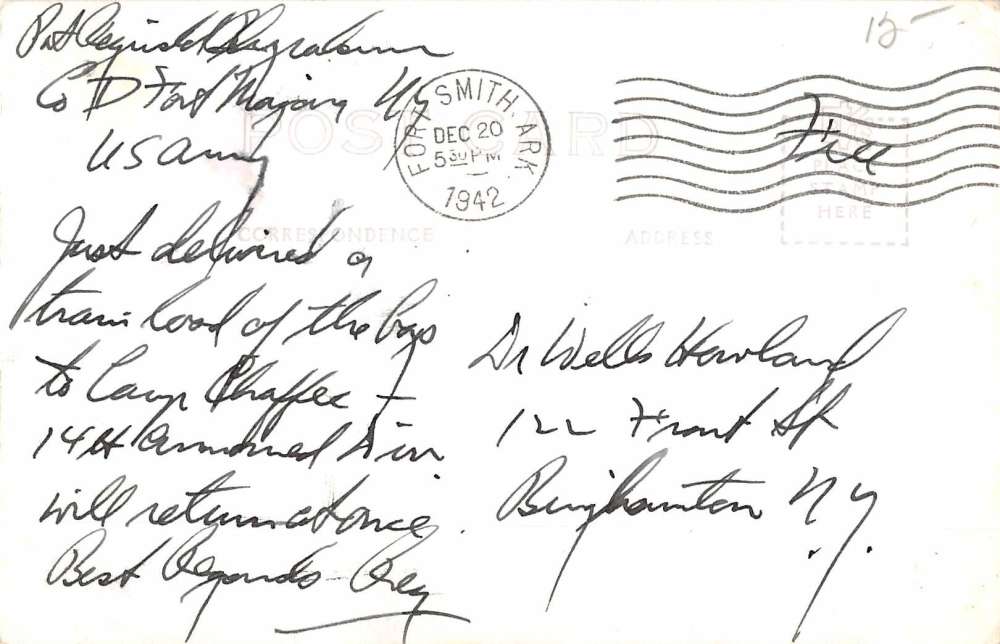 Pvt Reginald
Co D Fort Niagara NY
US Army
15-
FORT SMITH, ARK.
DEC 20
5 30 PM
1942
Free
POST CARD
PLACE
STAMP
HERE
CORRESPONDENCE
ADDRESS
Just delivered a
train load of the boys
to Camp Chaffee -
14th Armored Div
will return at once.
Best Regards - Reg
Dr Wells Howland
122 Front St
Binghamton N.Y.